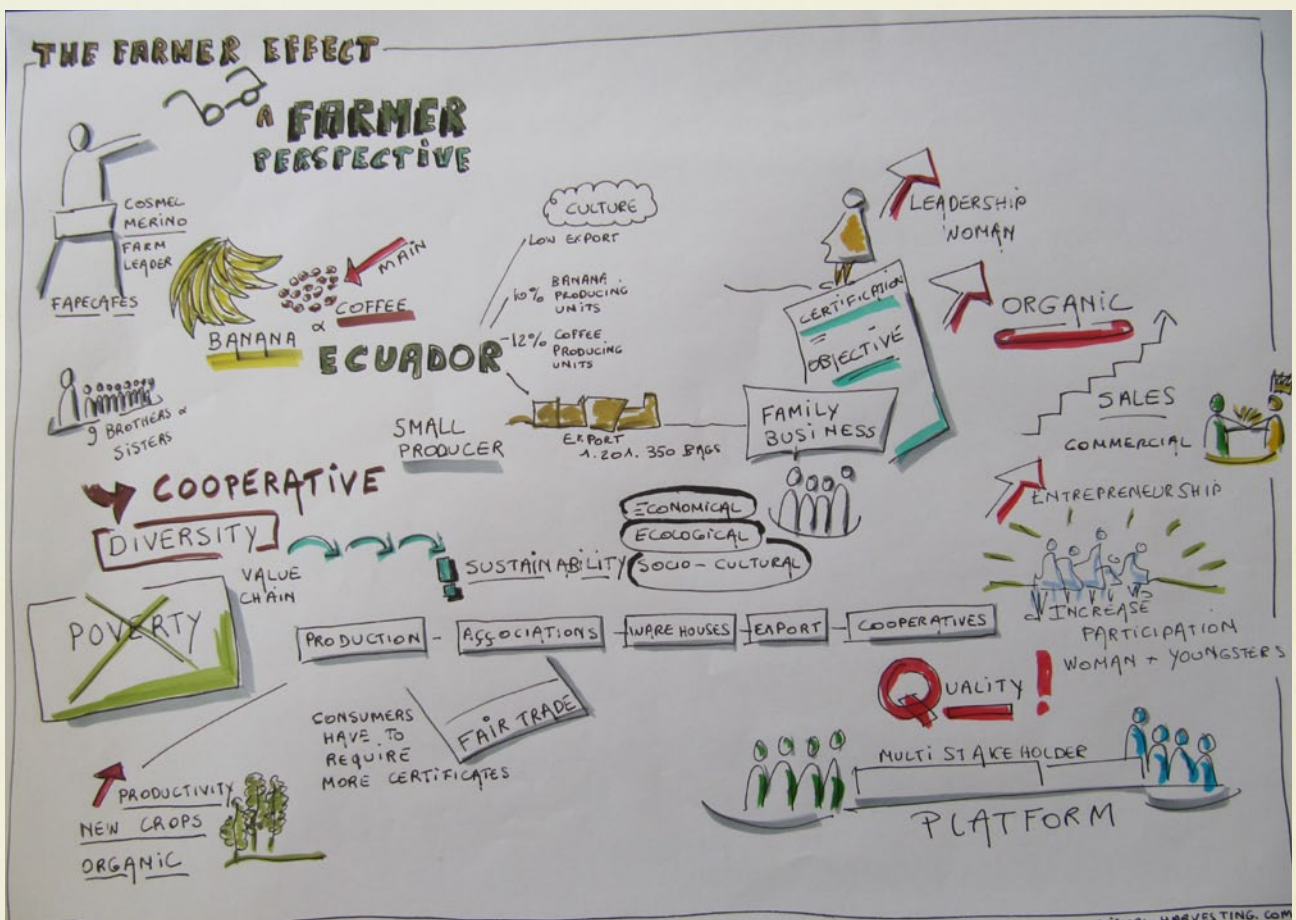 THE FARMER EFFECT
A FARMER
PERSPECTIVE
COSMEL
MERINO
FARM
LEADER
FAPECAFES
BANANA
&
COFFEE
MAIN
ECUADOR
CULTURE
LOW EXPORT
10% BANANA
PRODUCING
UNITS
-12% COFFEE
PRODUCING
UNITS
EXPORT
1.201.350 BAGS
SMALL
PRODUCER
9 BROTHERS &
SISTERS
FAMILY
BUSINESS
CERTIFICATION
OBJECTIVE
LEADERSHIP
WOMAN
ORGANIC
SALES
COMMERCIAL
ENTREPRENEURSHIP
INCREASE
PARTICIPATION
WOMAN + YOUNGSTERS
COOPERATIVE
DIVERSITY
VALUE
CHAIN
SUSTAINABILITY
ECONOMICAL
ECOLOGICAL
SOCIO-CULTURAL
POVERTY
PRODUCTION - ASSOCIATIONS - WAREHOUSES - EXPORT - COOPERATIVES
FAIR TRADE
CONSUMERS
HAVE TO
REQUIRE
MORE CERTIFICATES
PRODUCTIVITY
NEW CROPS
ORGANIC
QUALITY!
MULTI STAKEHOLDER
PLATFORM
HARVESTING.COM